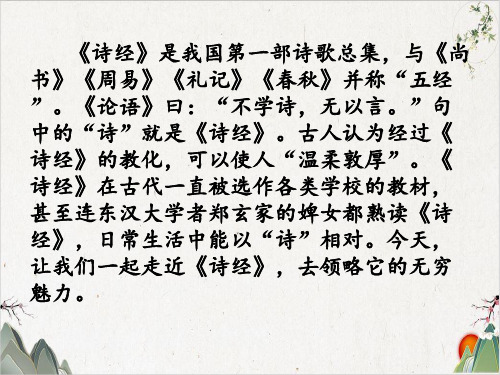 《诗经》是我国第一部诗歌总集，与《尚
书》《周易》《礼记》《春秋》并称“五经
”。《论语》曰：“不学诗，无以言。”句
中的“诗”就是《诗经》。古人认为经过《
诗经》的教化，可以使人“温柔敦厚”。《
诗经》在古代一直被选作各类学校的教材，
甚至连东汉大学者郑玄家的婢女都熟读《诗
经》，日常生活中能以“诗”相对。今天，
让我们一起走近《诗经》，去领略它的无穷
魅力。